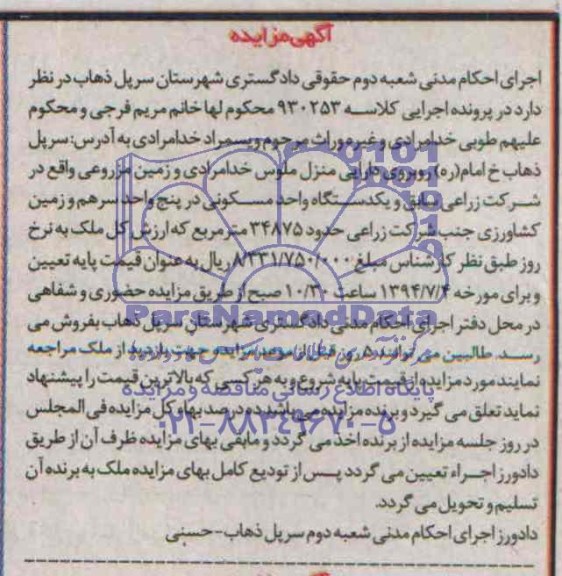 آگهی مزایده
اجرای احکام مدنی شعبه دوم حقوقی دادگستری شهرستان سرپل ذهاب در نظر
دارد در پرونده اجرایی کلاسه ۹۳۰۲۵۳ محکوم لها خانم مریم فرجی و محکوم
علیهم طوبی خدامرادی و غیره وراث مرحوم ویسمراد خدامرادی به آدرس: سرپل
ذهاب خ امام(ره) روبروی دارایی منزل ملوس خدامرادی و زمین مزروعی واقع در
شرکت زراعی سابق و یکدستگاه واحد مسکونی در پنج واحد سرهم و زمین
کشاورزی جنب شرکت زراعی حدود ۳۴۸۷۵ متر مربع که ارزش کل ملک به نرخ
روز طبق نظر کارشناس مبلغ ۸/۳۳۱/۷۵۰/۰۰۰ ریال به عنوان قیمت پایه تعیین
و برای مورخه ۱۳۹۴/۷/۴ ساعت ۱۰/۳۰ صبح از طریق مزایده حضوری و شفاهی
در محل دفتر اجرای احکام مدنی دادگستری شهرستان سرپل ذهاب بفروش می
رسد. طالبین می توانند ۵ روز قبل از موعد مزایده جهت بازدید از ملک مراجعه
نمایند مورد مزایده از قیمت پایه شروع و به هر کسی که بالاترین قیمت را پیشنهاد
نماید تعلق می گیرد و برنده مزایده می باشد ده درصد بهاء کل مزایده فی المجلس
در روز جلسه مزایده از برنده اخذ می گردد و مابقی بهای مزایده ظرف آن از طریق
دادورز اجراء تعیین می گردد پس از تودیع کامل بهای مزایده ملک به برنده آن
تسلیم و تحویل می گردد.
دادورز اجرای احکام مدنی شعبه دوم سرپل ذهاب-حسنی
ParsNamadData
پایگاه اطلاع رسانی مناقصه و مزایده
۰۲۱-۸۸۳۴۹۶۷۰-۵